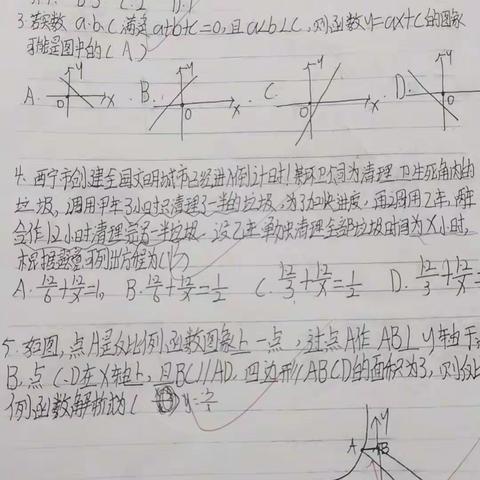 3.若实数a.b.C 满足a+b+c=0,且a<b<c,则函数y=ax+c的图象
可能是图中的(A)
A. y x O B. y x O C. y x O D. y O
4.西宁市创建全国文明城市已经进入倒计时!某环卫公司为清理卫生死角内的
垃圾,调用甲车3小时只清理了一半的垃圾,为了加快进度,再调用乙车,两车
合作1.2小时清理完另一半垃圾.设乙车单独清理全部垃圾时间为X小时,
根据题意可列出方程为( )
A. 1.2/6+1.2/x=1。 B. 1.2/6+1.2/x=1/2 C. 1.2/3+1.2/x=1/2 D. 1.2/3+1.2/x=
5.如图,点A是反比例函数图象上一点,过点A作AB⊥y轴于点
B,点C.D在X轴上,且BC//AD.四边形ABCD的面积为3,则
例函数解析式为(
y
A B